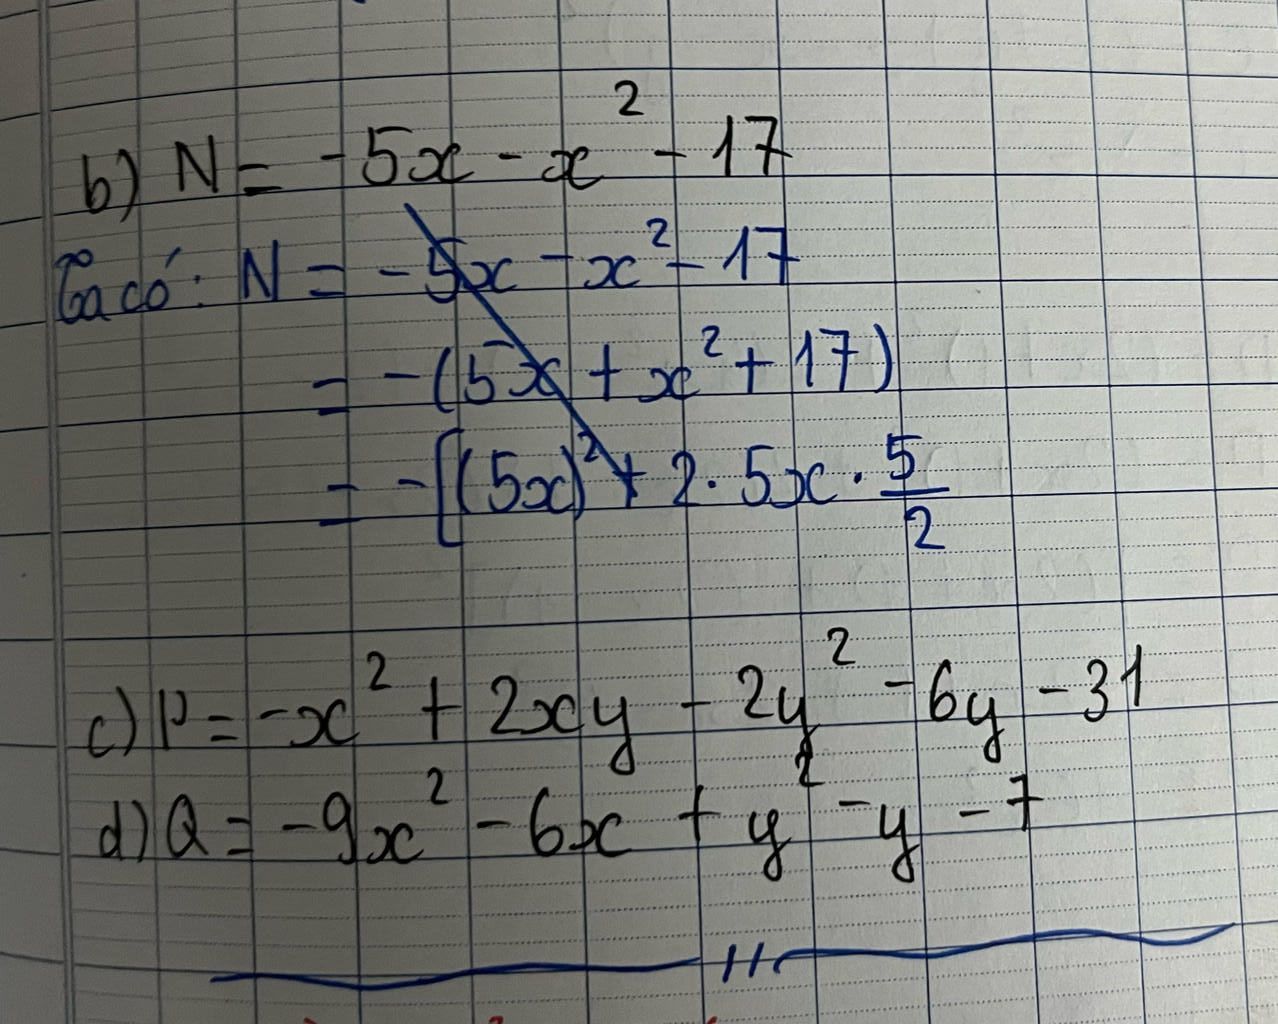 b) N = -5x - x² - 17
Ta có: N = -5x - x² - 17
= -(5x + x² + 17)
= -[(5x)² + 2 · 5x · 5/2
c) P = -x² + 2xy - 2y² - 6y - 31
d) Q = -9x² - 6x + y² - y - 7